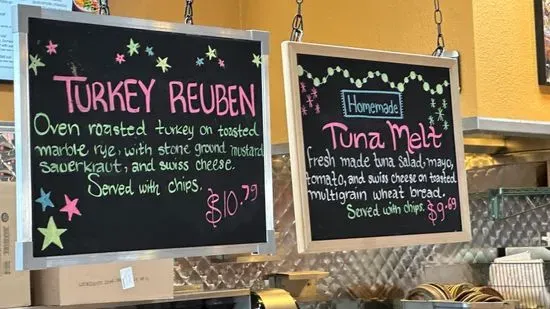 TURKEY REUBEN
Oven roasted turkey on toasted
marble rye, with stone ground mustard
sauerkraut, and swiss cheese.
Served with chips.
$10.79
Homemade
TUNA MELT
fresh made tuna salad, mayo,
tomato, and swiss cheese on toasted
multigrain wheat bread.
Served with chips.
$9.69